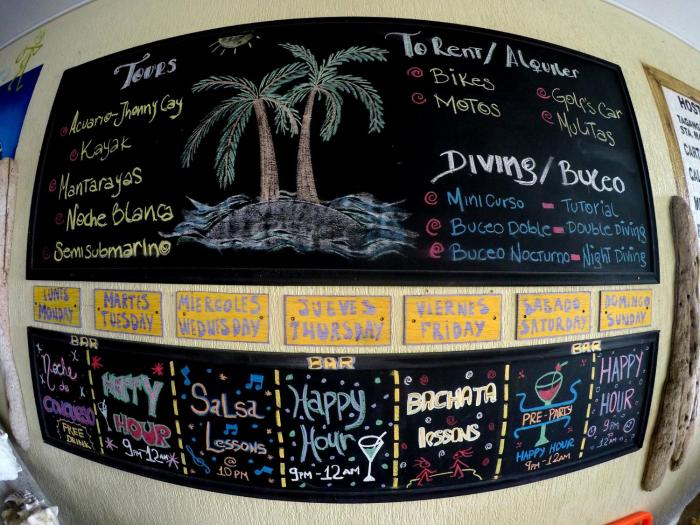 Tours
Acuario-Jhonny Cay
Kayak
Mantarayas
Noche Blanca
Semisubmarino
To Rent/Alquiler
Bikes
Motos
Golf's Car
Mulitas
Diving/Buceo
Mini Curso - Tutorial
Buceo Doble - Double Diving
Buceo Nocturno - Night Diving
LUNES
MONDAY
MARTES
TUESDAY
MIERCOLES
WEDNESDAY
JUEVES
THURSDAY
VIERNES
FRIDAY
SABADO
SATURDAY
DOMINGO
SUNDAY
BAR
BAR
BAR
Noche
de
FREE
DRINK
HAPPY
HOUR
9PM-12AM
Salsa
Lessons
@
10 PM
Happy
Hour
9PM-12AM
BACHATA
lessons
PRE-PARTY
HAPPY
HOUR
9PM-12AM
HAPPY
HOUR
9PM
-
12AM
HOST
TAGANG
STA. MA
CART